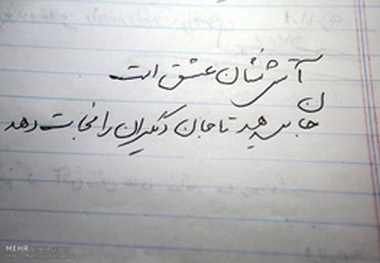 آتش نشان عشق است
جان می دهد تا جان دیگران را نجات دهد
MEHR